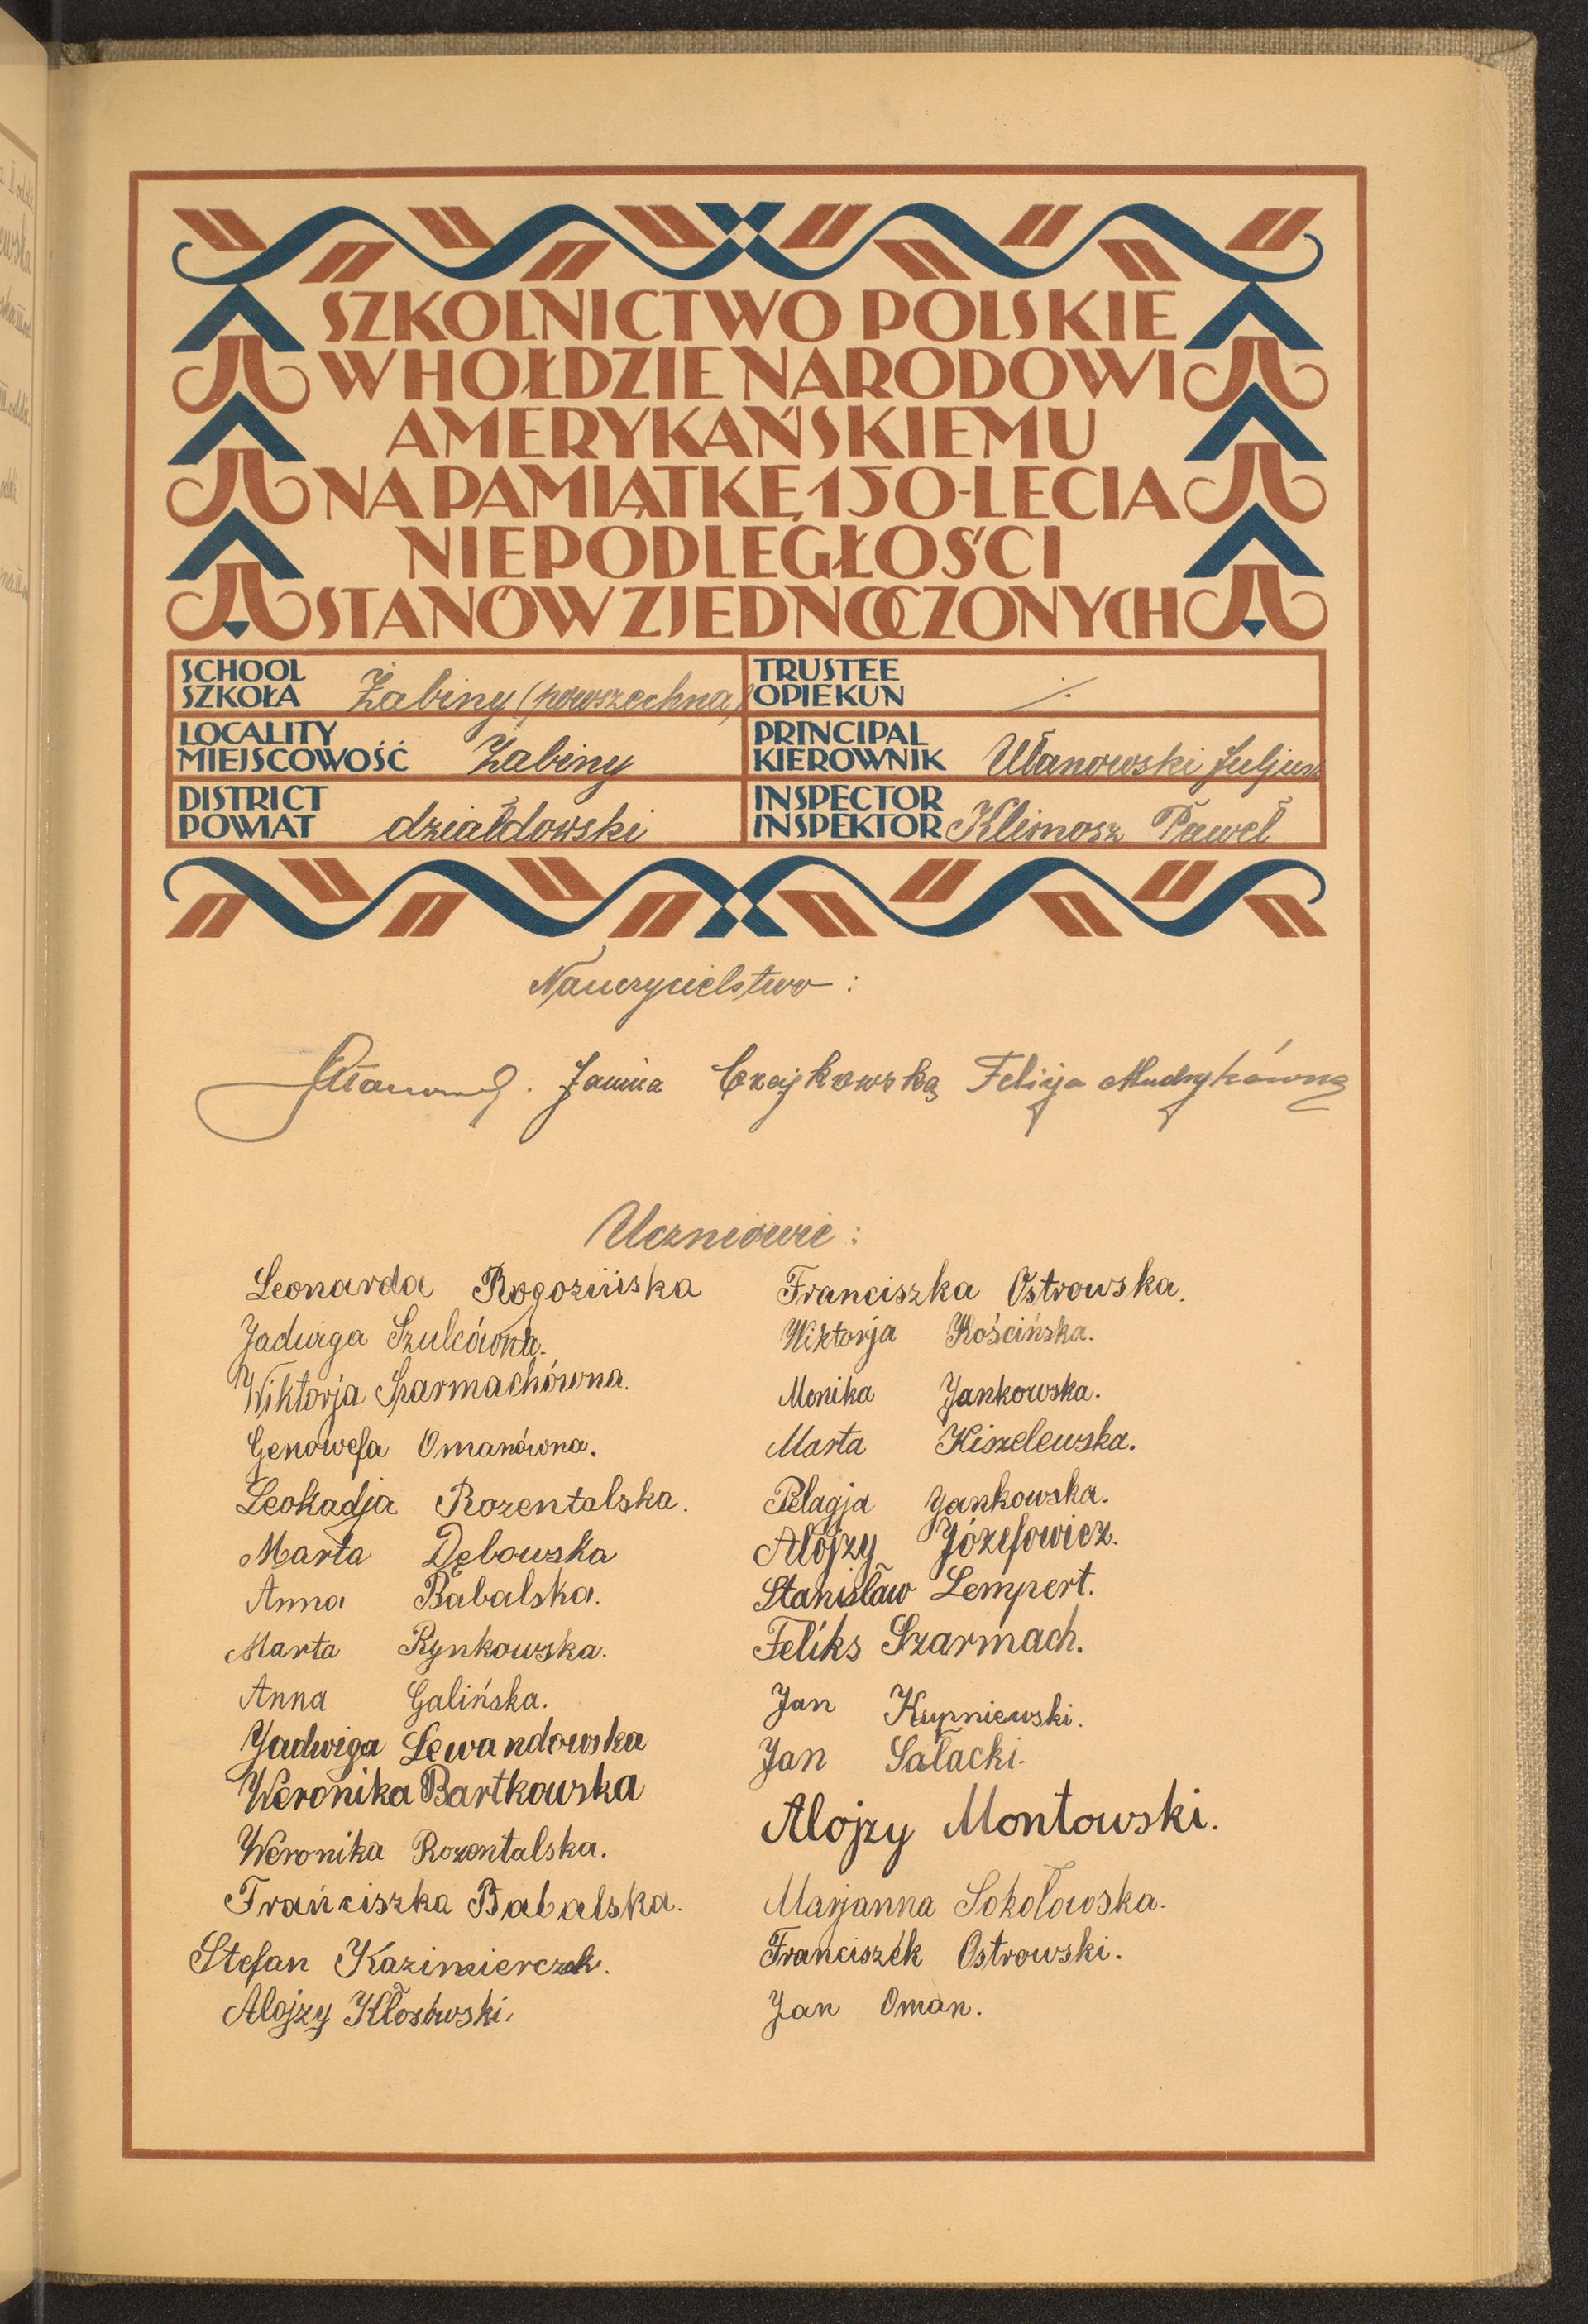 SZKOLNICTWO POLSKIE
W HOŁDZIE NARODOWI
AMERYKAŃSKIEMU
NA PAMIĄTKĘ 150-LECIA
NIEPODLEGŁOŚCI
STANÓW ZJEDNOCZONYCH
SCHOOL
SZKOŁA Żabiny (powszechna)
TRUSTEE
OPIEKUN
LOCALITY
MIEJSCOWOŚĆ Żabiny
PRINCIPAL
KIEROWNIK Ułanowski Juljusz
DISTRICT
POWIAT działdowski
INSPECTOR
INSPEKTOR Klimosz Paweł
Nauczycielstwo :
Janina Czajkowska Felicja Mudrykówna
Uczniowie :
Leonarda Rogozińska
Jadwiga Szulcówna.
Wiktorja Szarmachówna.
Genowefa Omanówna.
Leokadja Rozentalska.
Marta Dębowska
Anna Babalska.
Marta Rynkowska.
Anna Galińska.
Jadwiga Lewandowska
Weronika Bartkowska
Weronika Rozentalska.
Franciszka Babalska.
Stefan Kazimierczak.
Alojzy Kłosowski.
Franciszka Ostrowska.
Wiktorja Kościńska.
Monika Jankowska.
Marta Kiszelewska.
Pelagja Jankowska.
Alojzy Józefowicz.
Stanisław Lempert.
Feliks Szarmach.
Jan Krupniewski.
Jan Sałacki.
Alojzy Montowski.
Marjanna Sokołowska.
Franciszek Ostrowski.
Jan Oman.